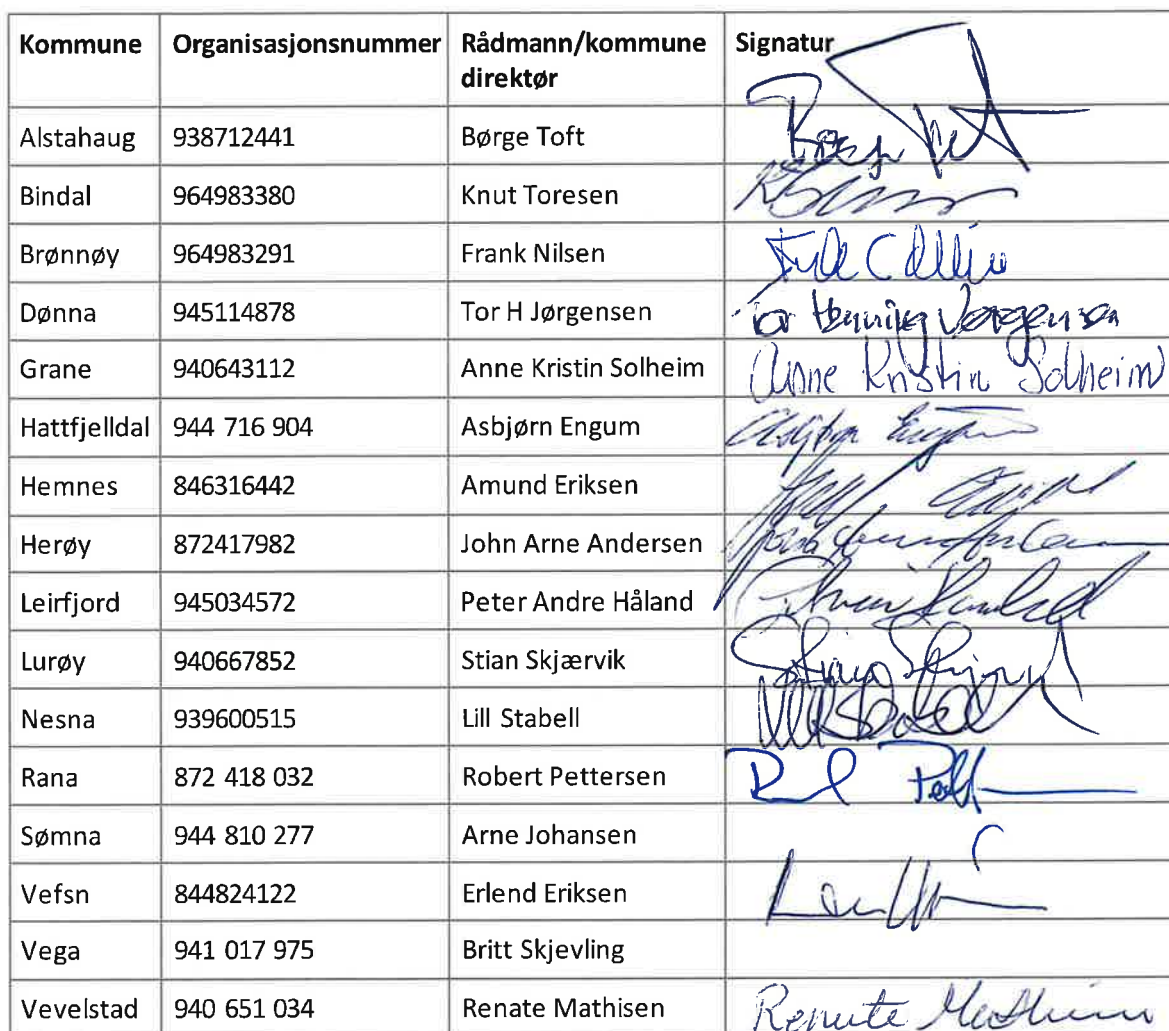 Kommune Organisasjonsnummer Rådmann/kommune direktør Signatur
Alstahaug 938712441 Børge Toft
Bindal 964983380 Knut Toresen
Brønnøy 964983291 Frank Nilsen
Dønna 945114878 Tor H Jørgensen Tor Henning Jørgensen
Grane 940643112 Anne Kristin Solheim Anne Kristin Solheim
Hattfjelldal 944 716 904 Asbjørn Engum Asbjørn Engum
Hemnes 846316442 Amund Eriksen
Herøy 872417982 John Arne Andersen
Leirfjord 945034572 Peter Andre Håland
Lurøy 940667852 Stian Skjærvik
Nesna 939600515 Lill Stabell
Rana 872 418 032 Robert Pettersen
Sømna 944 810 277 Arne Johansen
Vefsn 844824122 Erlend Eriksen
Vega 941 017 975 Britt Skjevling
Vevelstad 940 651 034 Renate Mathisen Renate Mathisen